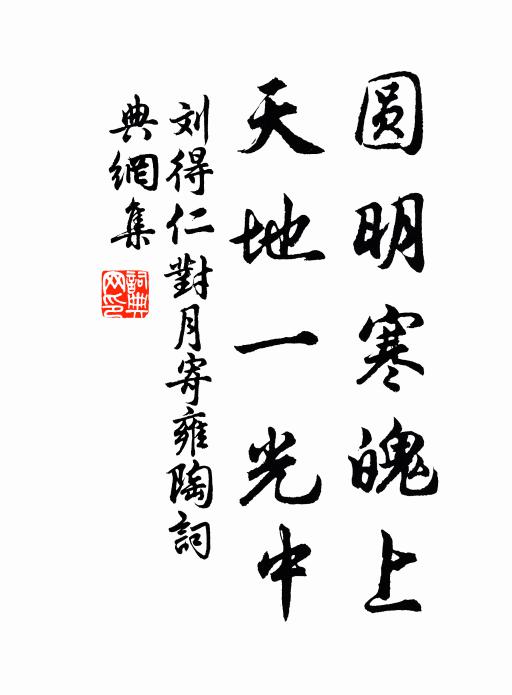 圆明寒魄上
天地一光中
刘得仁對月寄雍陶詞
典網集
詞典
网印